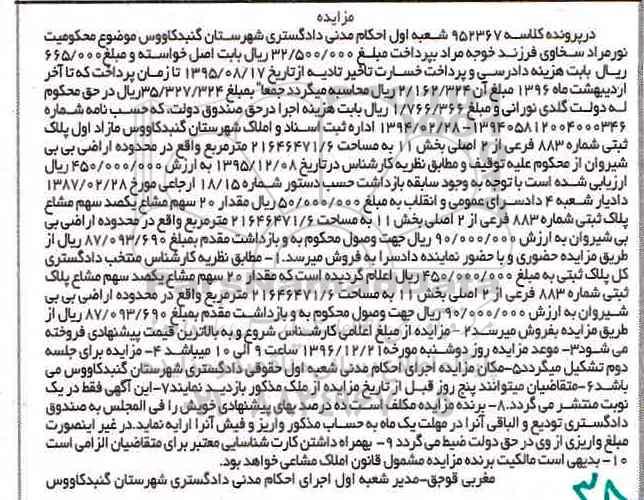 مزایده
درپرونده کلاسه ۹۵۲۳۶۷ شعبه اول احکام مدنی دادگستری شهرستان گنبدکاووس موضوع محکومیت
نورمراد سخاوی فرزند خوجه مراد بپرداخت مبلغ ۳۲/۵۰۰/۰۰۰ ریال بابت اصل خواسته و مبلغ ۶۶۵/۰۰۰
ریال بابت هزینه دادرسی و پرداخت خسارت تاخیر تادیه ازتاریخ ۱۳۹۵/۰۸/۱۷ تا زمان پرداخت که تا آخر
اردیبهشت ماه ۱۳۹۶ مبلغ آن ۲/۱۶۲/۳۲۴ ریال محاسبه میگردد جمعا" بمبلغ ۳۵/۳۲۷/۳۲۴ریال در حق محکوم
له دولت گلدی نورانی و مبلغ ۱/۷۶۶/۳۶۶ ریال بابت هزینه اجرا درحق صندوق دولت، که حسب نامه شماره
۱۳۹۴۰۵۸۱۲۰۰۴۰۰۰۳۴۶-۱۳۹۴/۰۲/۲۸ اداره ثبت اسناد و املاک شهرستان گنبدکاووس مازاد اول پلاک
ثبتی شماره ۸۸۳ فرعی از ۲ اصلی بخش ۱۱ به مساحت ۲۱۶۴۶۴۷۱/۶ مترمربع واقع در محدوده اراضی بی بی
شیروان از محکوم علیه توقیف و مطابق نظریه کارشناس درتاریخ ۱۳۹۵/۱۲/۰۸ به ارزش ۴۵۰/۰۰۰/۰۰۰ ریال
ارزیابی شده است با توجه به وجود سابقه بازداشت حسب دستور شماره ۱۸/۱۵ ارجاعی مورخ ۱۳۸۷/۰۲/۲۸
دادیار شعبه ۴ دادسرای عمومی و انقلاب به مبلغ ۵۰/۰۰۰/۰۰۰ ریال مقدار ۲۰ سهم مشاع یکصد سهم مشاع
پلاک ثبتی شماره ۸۸۳ فرعی از ۲ اصلی بخش ۱۱ به مساحت ۲۱۶۴۶۴۷۱/۶ مترمربع واقع در محدوده اراضی بی
بی شیروان به ارزش ۹۰/۰۰۰/۰۰۰ ریال جهت وصول محکوم به و بازداشت مقدم بمبلغ ۸۷/۰۹۳/۶۹۰ ریال از
طریق مزایده حضوری و با حضور نماینده دادسرا به فروش میرسد.۱- مطابق نظریه کارشناس منتخب دادگستری
کل پلاک ثبتی به مبلغ ۴۵۰/۰۰۰/۰۰۰ریال اعلام گردیده است که مقدار ۲۰ سهم مشاع یکصد سهم مشاع پلاک
ثبتی شماره ۸۸۳ فرعی از ۲ اصلی بخش ۱۱ به مساحت ۲۱۶۴۶۴۷۱/۶ مترمربع واقع در محدوده اراضی بی بی
شیروان به ارزش ۹۰/۰۰۰/۰۰۰ریال جهت وصول محکوم به و بازداشت مقدم بمبلغ ۸۷/۰۹۳/۶۹۰ ریال از
طریق مزایده بفروش میرسد۲- مزایده از مبلغ اعلامی کارشناس شروع و به بالاترین قیمت پیشنهادی فروخته
می شود۳- موعد مزایده روز دوشنبه مورخه۱۳۹۶/۱۲/۲۱ ساعت ۹ الی ۱۰ میباشد ۴- مزایده برای جلسه
دوم تشکیل میگردد۵-مکان مزایده اجرای احکام مدنی شعبه اول حقوقی دادگستری شهرستان گنبدکاووس می
باشد۶-متقاضیان میتوانند پنج روز قبل از تاریخ مزایده از ملک مذکور بازدید نمایند۷-این آگهی فقط در یک
نوبت منتشر می گردد.۸- برنده مزایده مکلف است ده درصد بهای پیشنهادی خویش را فی المجلس به صندوق
دادگستری تودیع و الباقی آنرا در مهلت یک ماه به حساب مذکور واریز و فیش آنرا ارایه نماید.در غیر اینصورت
مبلغ واریزی از وی در حق دولت ضبط می گردد ۹- بهمراه داشتن کارت شناسایی معتبر برای متقاضیان الزامی است
۱۰- بدیهی است مالکیت برنده مزایده مشمول قانون املاک مشاعی خواهد بود.
مغربی قوجق-مدیر شعبه اول اجرای احکام مدنی دادگستری شهرستان گنبدکاووس